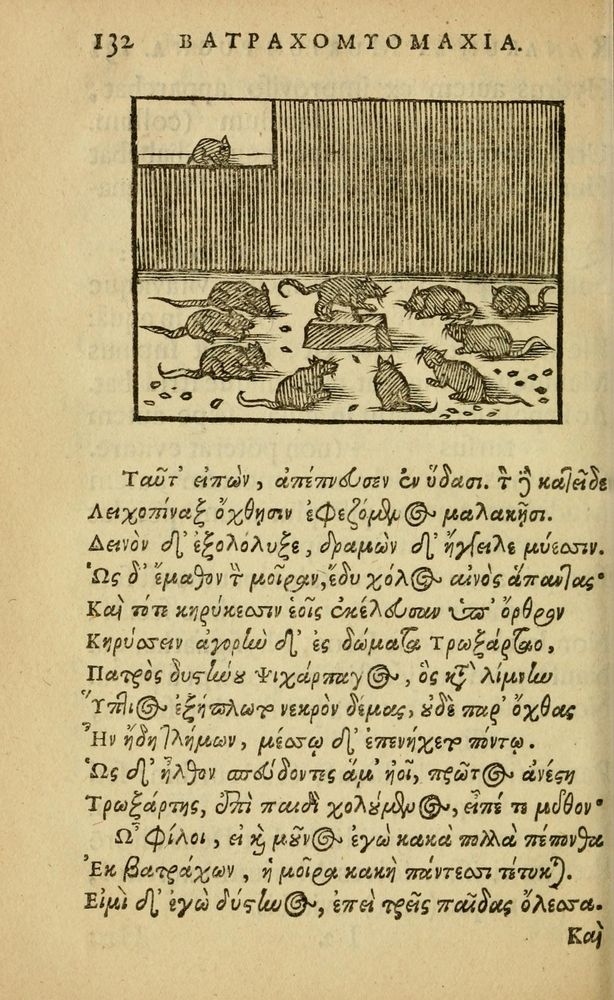 132 ΒΑΤΡΑΧΟΜΥΟΜΑΧΙΑ.
Ταῦτ' εἰπὼν, ἀπέπνευσεν ἐν ὕδασι. τὸν δὲ κατεῖδε
Λειχοπίναξ ὄχθησιν ἐφεζόμενος μαλακῇσι.
Δεινὸν δ' ἐξολόλυξε, δραμὼν δ' ἤγγειλε μύεσσιν.
Ὡς δ' ἔμαθον τὴν μοῖραν, ἔδυ χόλος αἰνὸς ἅπαντας·
Καὶ τότε κηρύκεσσιν ἑοῖς ἐκέλευσαν ὑπ' ὄρθρον
Κηρύσσειν ἀγορὴν δ' ἐς δώματα Τρωξάρταο,
Πατρὸς δυστήνου Ψιχάρπαγος, ὃς κατὰ λίμνην
Ὕπτιος ἐξήπλωτο νεκρὸν δέμας, οὐδὲ παρ' ὄχθας
Ἦν ἤδη τλήμων, μέσσῳ δ' ἐπενήχετο πόντῳ.
Ὡς δ' ἦλθον σπεύδοντες ἅμ' ἠοῖ, πρῶτος ἀνέστη
Τρωξάρτης, ἐπὶ παιδὶ χολούμενος, εἶπέ τε μῦθον·
Ὦ φίλοι, εἰ καὶ μοῦνος ἐγὼ κακὰ πολλὰ πέπονθα
Ἐκ βατράχων, ἡ μοῖρα κακὴ πάντεσσι τέτυκται.
Εἰμὶ δ' ἐγὼ δύστηνος, ἐπεὶ τρεῖς παῖδας ὄλεσσα.
Καὶ